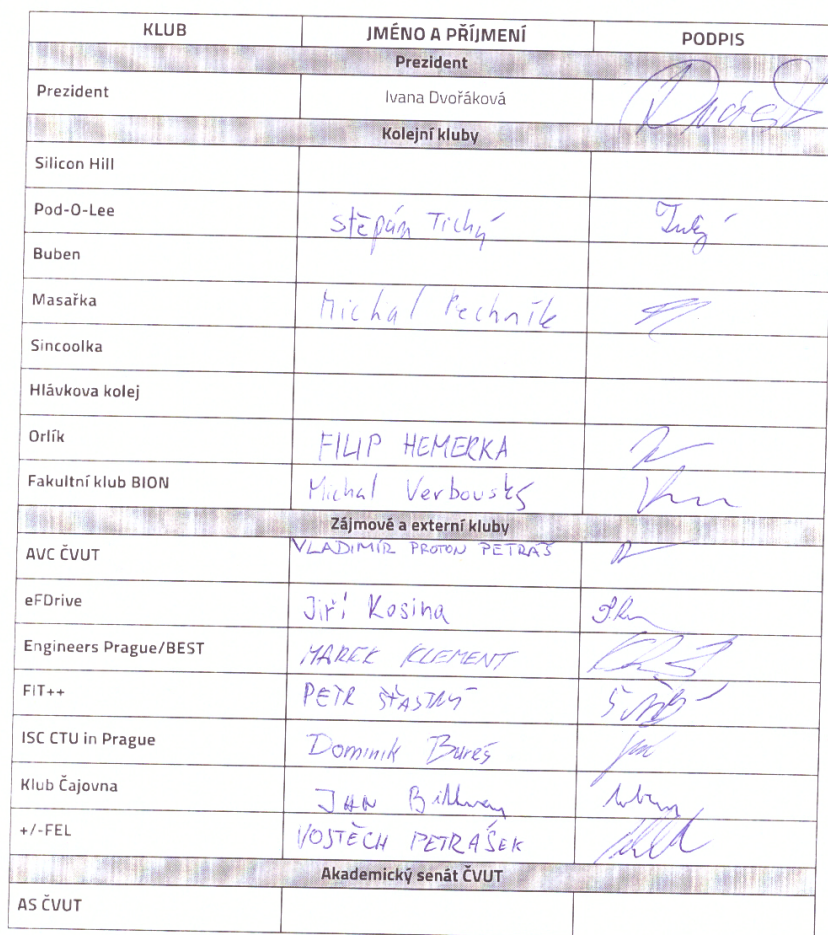 KLUB JMÉNO A PŘÍJMENÍ PODPIS
Prezident
Prezident Ivana Dvořáková
Kolejní kluby
Silicon Hill
Pod-O-Lee Štěpán Tichý
Buben
Masařka Michal Pechník
Sincoolka
Hlávkova kolej
Orlík FILIP HEMERKA
Fakultní klub BION Michal Verbovský
Zájmové a externí kluby
AVC ČVUT VLADIMÍR PROTON PETRAŠ
eFDrive Jiří Kosina
Engineers Prague/BEST MAREK KLEMENT
FIT++ PETR ŠŤASTNÝ
ISC CTU in Prague Dominik Bureš
Klub Čajovna JAN
+/-FEL VOJTĚCH PETRÁŠEK
Akademický senát ČVUT
AS ČVUT